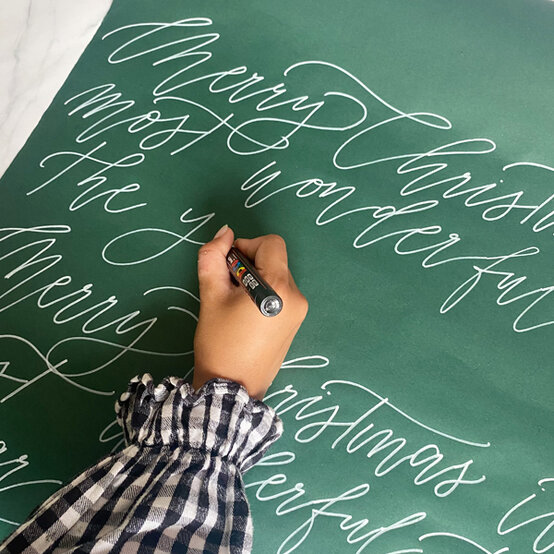 Merry Christ
most wonderful
the y
Merry Christmas
derful
ar